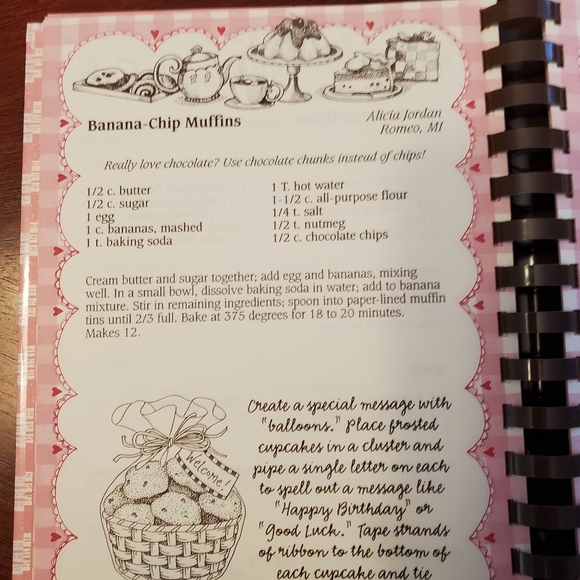 Banana-Chip Muffins
Alicia Jordan
Romeo, MI
Really love chocolate? Use chocolate chunks instead of chips!
1/2 c. butter
1/2 c. sugar
1 egg
1 c. bananas, mashed
1 t. baking soda
1 T. hot water
1-1/2 c. all-purpose flour
1/4 t. salt
1/2 t. nutmeg
1/2 c. chocolate chips
Cream butter and sugar together; add egg and bananas, mixing
well. In a small bowl, dissolve baking soda in water; add to banana
mixture. Stir in remaining ingredients; spoon into paper-lined muffin
tins until 2/3 full. Bake at 375 degrees for 18 to 20 minutes.
Makes 12.
Welcome!
Create a special message with
"balloons." Place frosted
cupcakes in a cluster and
pipe a single letter on each
to spell out a message like
"Happy Birthday" or
"Good Luck." Tape strands
of ribbon to the bottom of
each cupcake and tie